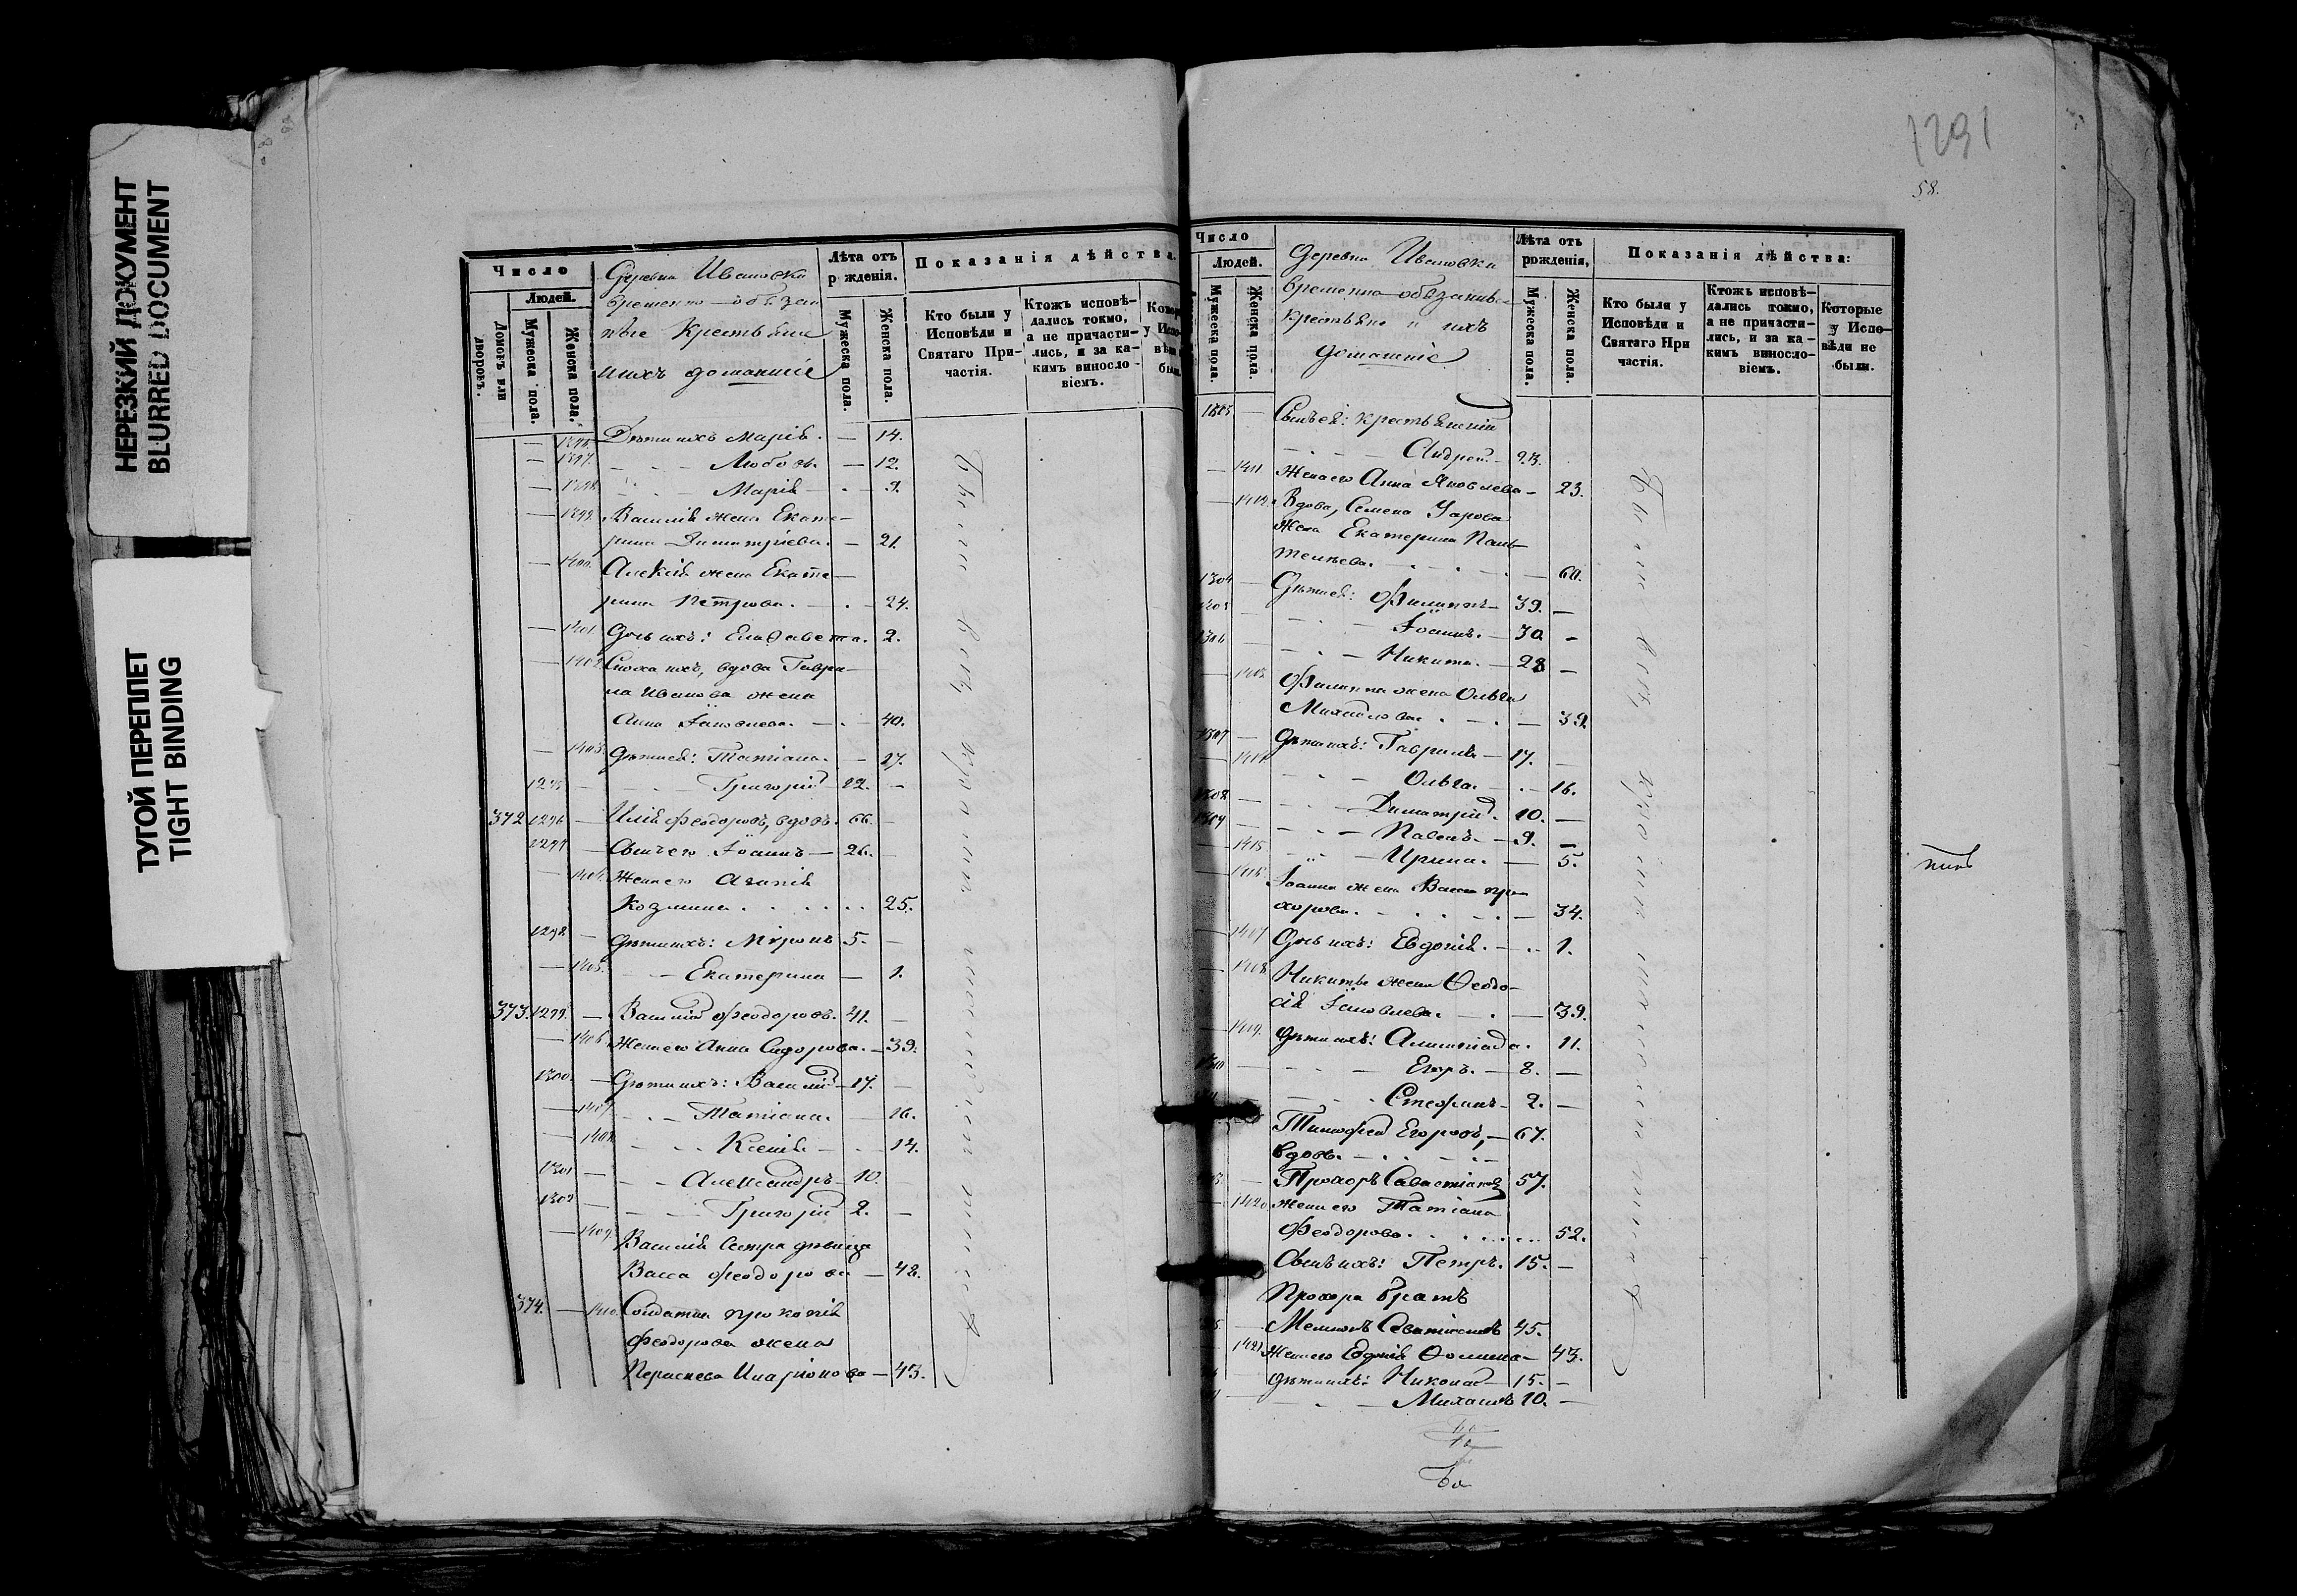 НЕРЕЗКИЙ ДОКУМЕНТ
BLURRED DOCUMENT
ТУГОЙ ПЕРЕПЛЕТ
TIGHT BINDING
Число
Людей.
Домовъ или дворовъ.
Мужеска пола.
Женска пола.
Деревни Ивановки
временно-обязан
ные Крестьяне
и ихъ домашніе
Лѣта отъ рожденія.
Мужеска пола.
Женска пола.
Показанія дѣйства.
Кто были у Исповѣди и Святаго Причастія.
Ктожъ исповѣ-
дались токмо,
а не причасти-
лись, и за ка-
кимъ винosло-
віемъ.
1396. Дѣти ихъ Марія. — 14.
1397. Любовь. — 12.
1398. Марія — 9.
1399. Василія жена Екате-
рина Димитріева. — 21.
1400. Алексія жена Екате-
рина Петрова. — 24.
1401. Дочь ихъ: Елисавета. 2.
1402. Сноха ихъ, вдова Гаври-
ла Иванова жена
Анна Іаковлева. — 40.
1403. Дѣти ея: Татіана. — 27.
1295 — Григорій 22. —
372. 1296 — Илія Феодоровъ, вдовъ. 66. —
1297 — Сынъ его Іоаннъ — 26. —
1404. Жена его Агапія
Козмина. 25.
1298 — Дѣти ихъ: Миронъ 5. —
1405. Екатерина — 1.
373. 1299. — Василій Феодоровъ. 41. —
1406. Жена его Анна Сидорова. — 39.
1300. — Дѣти ихъ: Василій — 17. —
1407. Татіана. 16.
1408. Ксенія — 14.
1301 — Александръ — 10.
1302 — Григорій 2. —
1409. Василія Сестра дѣвица
Васса Феодорова — 48.
374. — 1410. Солдатка Прокопія
Феодорова жена
Параскева Иларіонова — 43.
Были всѣ кромѣ
1291
58.
Число
Людей.
Мужеска пола.
Женска пола.
Деревни Ивановки
временно-обязанные
крестьяне и ихъ
домашніе
Лѣта отъ рожденія,
Мужеска пола.
Женска пола.
Показанія дѣйства:
Кто были у Исповѣди и Святаго При частія.
Ктожъ исповѣ-
дались токмо,
а не причасти-
лись, и за ка-
кимъ виносло-
віемъ.
Которые
у Испо-
вѣди не
были.
1303 — Сынъ ея: крестьянинъ
Андрей — 23.
1411. Жена его Анна Яковлева — 23.
1412. Вдова, Семена Уарова
жена Екатерина Пан-
телеева. — 60.
1304 — Дѣти ея: Филиппъ — 39. —
1305 Іоаннъ. — 30. —
1306 Никита. — 28 —
1413. Филиппа жена Ольга
Михаилова. — 39.
1307 — Дѣти ихъ: Гавріилъ — 17. —
1414 Ольга. — 16.
1308 — Димитрій. 10. —
1309 — Павелъ. — 9. —
1415 Ирина. — 5.
1416 Іоанна жена Васса Про-
хорова. — 34.
1417 Дочь ихъ: Евдокія. — 1.
1418 Никиты жена Феодо-
сія Іаковлева. — 39.
1419. Дѣти ихъ: Алимпіада. 11.
1310 Егоръ. — 8. —
Стефанъ — 2. —
Тимофей Егоровъ, — 67.
вдовъ.
Прохоръ Савастіановъ 57.
1420 жена его Татіана
Феодорова. 52.
Сынъ ихъ: Петръ. 15. —
Прохора братъ
Севастіановъ 45.
1421 Жена его Евдокія Фомина — 43.
Дѣти ихъ: Николай — 15. —
Михаилъ 10. —
Были всѣ кромѣ